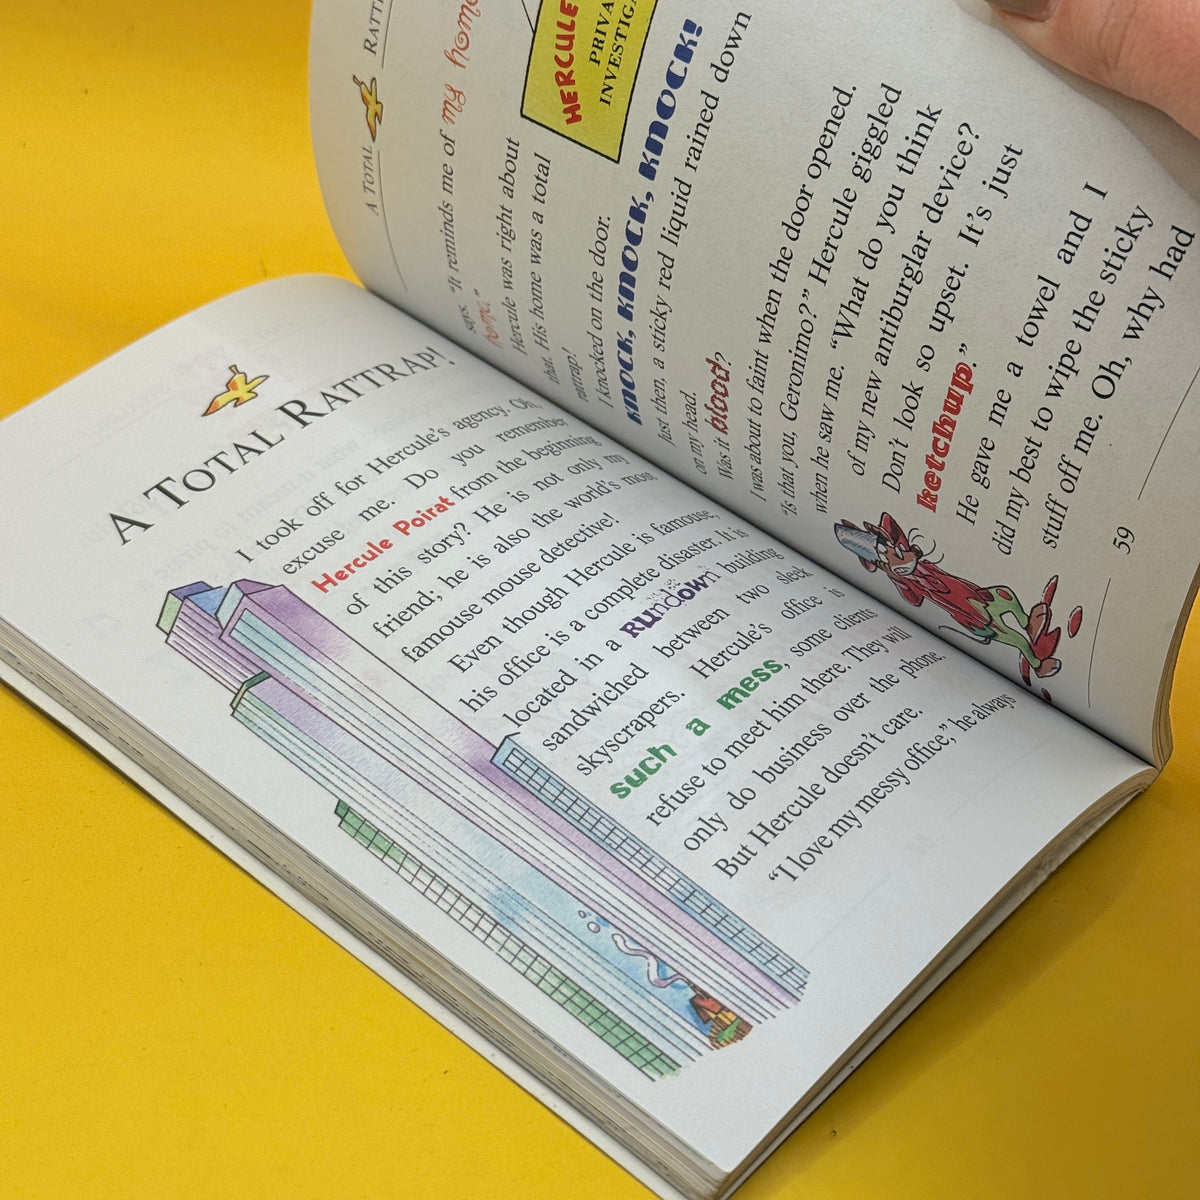 A TOTAL RATTRAP!
I took off for Hercule's agency. Oh,
excuse me. Do you remember
Hercule Poirat from the beginning
of this story? He is not only my
friend; he is also the world's most
famouse mouse detective!
Even though Hercule is famouse,
his office is a complete disaster. It is
located in a RUNDOWN building
sandwiched between two sleek
skyscrapers. Hercule's office is
such a mess, some clients
refuse to meet him there. They will
only do business over the phone.
But Hercule doesn't care.
"I love my messy office," he always
A TOTAL
says. "It reminds me of my home
home."
Hercule was right about
that. His home was a total
rattrap!
HERCULE
PRIVA
INVESTIGA
I knocked on the door.
KNOCK, KNOCK, KNOCK, KNOCK!
Just then, a sticky red liquid rained down
on my head.
Was it blood?
I was about to faint when the door opened.
"Is that you, Geronimo?" Hercule giggled
when he saw me. "What do you think
of my new antiburglar device?
Don't look so upset. It's just
ketchup."
He gave me a towel and I
did my best to wipe the sticky
stuff off me. Oh, why had
59